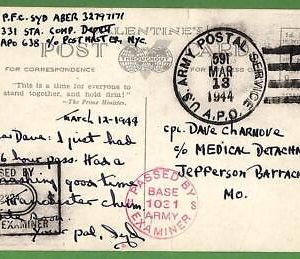 P.F.C. SYD ABER 32797171
331 STA. COMP. DEPOT
APO 638 c/o POSTMASTER, NYC.
VALENTINE
POST CARD
"This is a time for everyone to
stand together, and hold firm!"
—The Prime Minister.
March 12-1944
Dear Dave: I just had
hour pass. Had a
good time
in chester
Soon
your pal, Syd
U.S. ARMY POSTAL SERVICE
591
MAR
13
1944
A.P.O.
Cpl. Dave Charnove
c/o Medical Detachm
Jefferson Barrac
Mo.
PASSED BY
BASE
1031
ARMY
EXAMINER
PASSED BY
EXAMINER